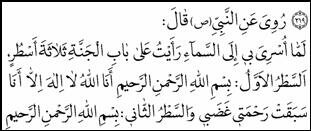 ﴿٣١٩﴾ رُوِىَ عَنِ النَّبِىِّ (ص) قٰالَ:
لَمّٰا اُسْرِىَ بى اِلَى السَّمٰاءِ رَاَيْتُ عَلىٰ بٰابِ الْجَنَّةِ ثَلٰاثَةَ اَسْطُرٍ.
اَلسَّطْرُ الْاَوَّلُ: بِسْمِ اللّٰهِ الرَّحْمٰنِ الرَّحيمِ اَنَا اللّٰهُ لٰا اِلٰهَ اِلّٰا اَنَا
سَبَقَتْ رَحْمَتى غَضَبى وَالسَّطْرُ الثّٰانى: بِسْمِ اللّٰهِ الرَّحْمٰنِ الرَّحيمِ